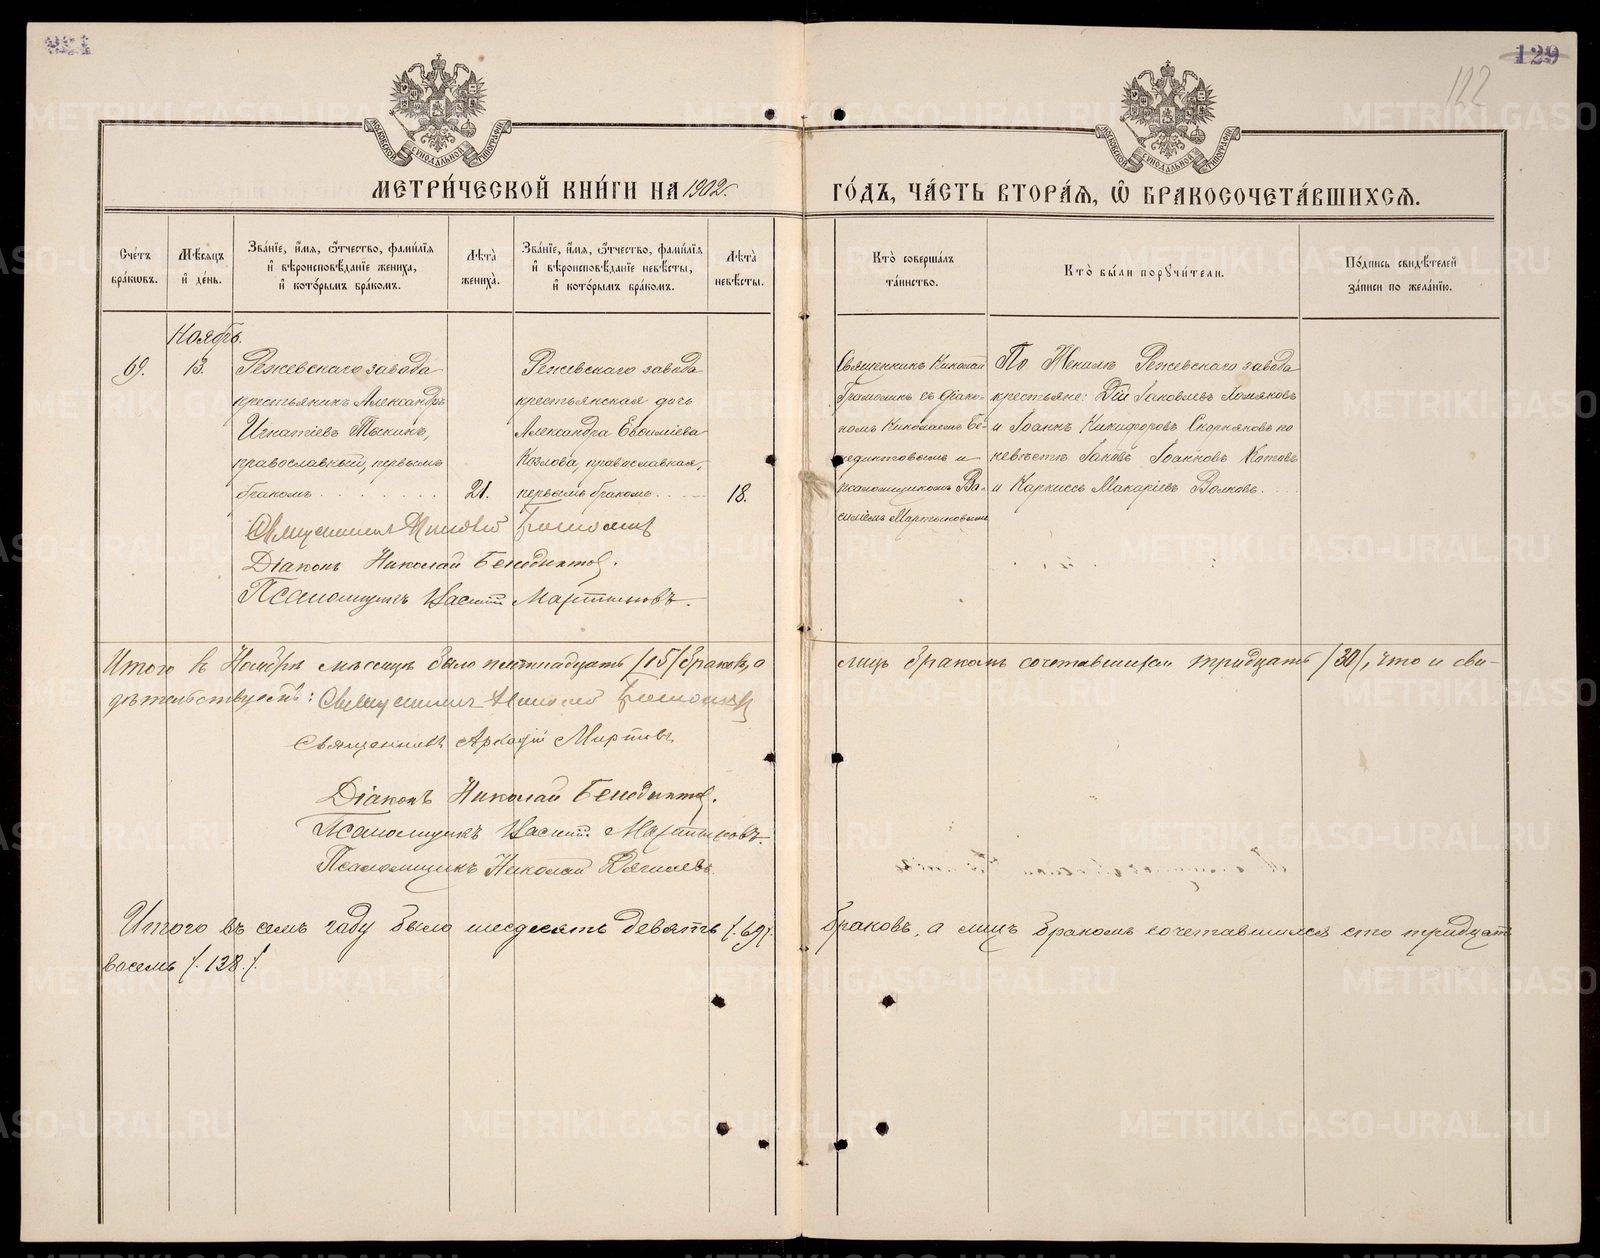 129
122
МОСКОВСКОЙ СѴНОДАЛЬНОЙ ТИПОГРАФІИ
МОСКОВСКОЙ СѴНОДАЛЬНОЙ ТИПОГРАФІИ
МЕТРИ́ЧЕСКОЙ КНИ́ГИ НА 1902 г.
ГО́ДЪ, ЧА́СТЬ ВТОРА́Ѧ, Ѽ БРАКОСОЧЕТА́ВШИХСѦ.
Сче́тъ бра́кѡвъ.
Мѣ́сѧцъ и҆ де́нь.
Зва́нїе, и҆́мѧ, ѻ҆́тчество, фами́лїѧ и҆ вѣроисповѣ́данїе жениха̀, и҆ кото́рымъ бра́комъ.
Лѣ́та̀ жениха̀.
Зва́нїе, и҆́мѧ, ѻ҆́тчество, фами́лїѧ и҆ вѣроисповѣ́данїе невѣ́сты, и҆ кото́рымъ бра́комъ.
Лѣ́та̀ невѣ́сты.
Кто̀ соверша́лъ та́инство.
Кто̀ бы́ли порꙋчи́тели.
По́дпись свидѣ́телей за́писи по жела́нїю.
Ноябрь.
69.
13.
Режевскаго завода
крестьянинъ Александръ
Игнатіевъ Тыкинъ,
православный, первымъ
бракомъ
21.
Режевскаго завода
крестьянская дочь
Александра Евѳиміева
Козлова, православная,
первымъ бракомъ
18.
Священникъ Николай
съ діако-
номъ Николаемъ Бе-
недиктовымъ и
псаломщикомъ Ва-
силіемъ Мартыновымъ
По женихѣ Режевскаго завода
крестьяне: Дій Іаковлевъ Хомяковъ
и Іоаннъ Никифоровъ Скорняковъ по
невѣстѣ Іаковъ Іоанновъ Котовъ
и Наркиссъ Макаріевъ Волковъ.
Священникъ Николай
Діаконъ Николай Бенедиктов.
Псаломщикъ Василій Мартыновъ.
Итого въ Ноябрѣ мѣсяцѣ было пятнадцать /15/ браковъ, а
лицъ бракомъ сочетавшихся тридцать /30/, что и сви-
дѣтельствуемъ: Священникъ Николай
Священникъ Аркадій
Діаконъ Николай Бенедиктов.
Псаломщикъ Василій Мартыновъ.
Псаломщикъ Николай
Итого въ семъ году было шесдесять девять /.69/.
браковъ, а лицъ бракомъ сочетавшихся сто тридцать
восемь /.138./.
METRIKI.GASO-URAL.RU